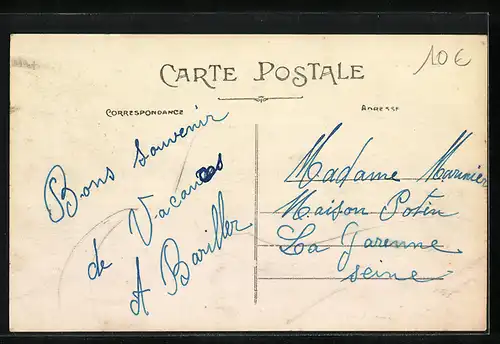 10€
CARTE POSTALE
CORRESPONDANCE
ADRESSE
Bons souvenir
de Vacances
A Bariller
Madame Marnier
Maison Potin
La Garenne
seine